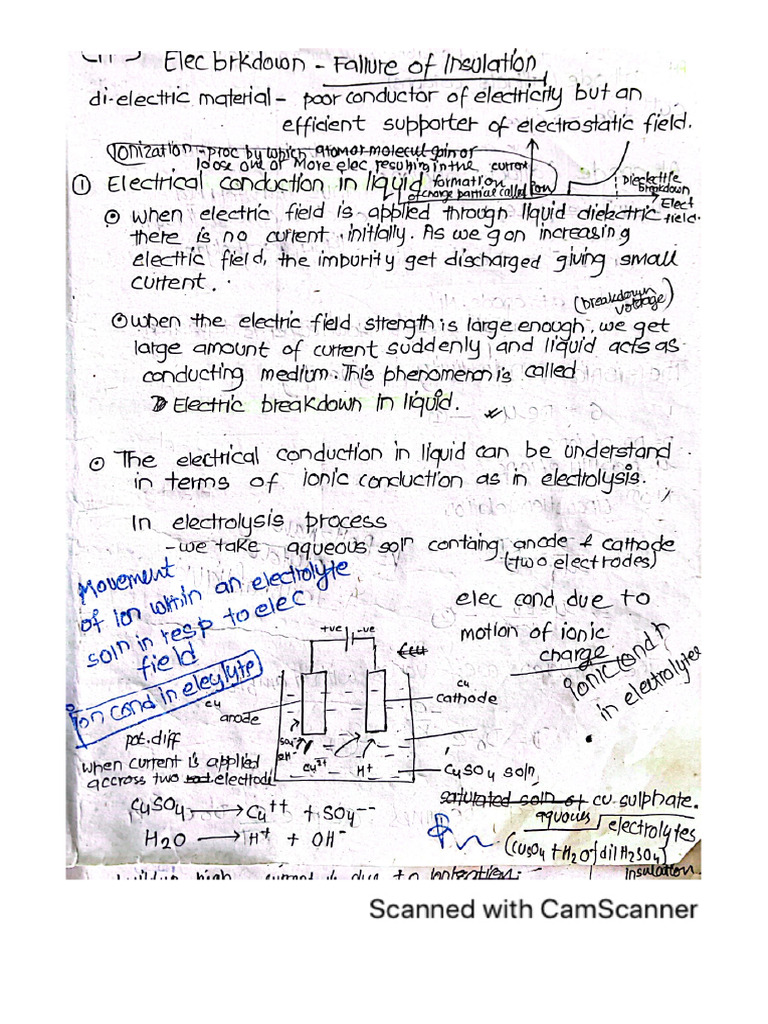 Elec brkdown - Failure of Insulation
di-electric material - poor conductor of electricity but an
efficient supporter of electrostatic field.
Ionization - proc by which atom or molecul gain or
loose one or more elec resulting in the
formation
of charge partial called ion
current
Dielectric
breakdown
Elect
field.
① Electrical conduction in liquid
when electric field is applied through liquid dielectric
there is no current initially. As we g on increasing
electric field, the impurity get discharged giving small
current.
(breakdown
voltage)
when the electric field strength is large enough, we get
large amount of current suddenly and liquid acts as
conducting medium. This phenomenon is called
Electric breakdown in liquid.
The electrical conduction in liquid can be understand
in terms of ionic conduction as in electrolysis.
In electrolysis process
- we take aqueous soln containg anode & cathode
(two electrodes)
Movement
of ion within an electrolyte
soln in resp to elec
field
ion cond in eleylyte
elec cond due to
motion of ionic
charge
ionic cond n
in electrolytes
+ve -ve
cu
anode
cu
cathode
SO4--
OH-
Cu2+
H+
CuSO4 soln
pot. diff
when current is applied
accross two electrode
saturated soln of cu sulphate.
aqueous electrolytes
(CuSO4 + H2O of dil H2SO4)
insulation.
CuSO4 → Cu++ + SO4--
H2O → H+ + OH-
Scanned with CamScanner